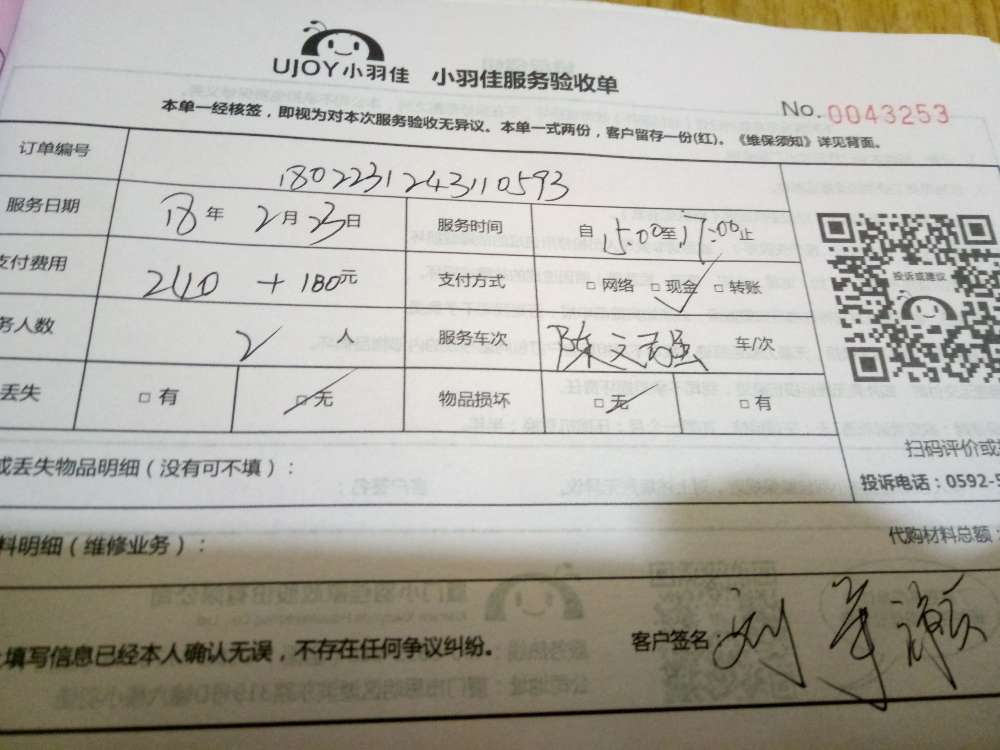 UJOY小羽佳 小羽佳服务验收单
No. 0043253
本单一经核签，即视为对本次服务验收无异议。本单一式两份，客户留存一份(红)。《维保须知》详见背面。
订单编号 1802231243110593
服务日期 18年 2月23日 服务时间 自15:00至17:00止
支付费用 240 + 180元 支付方式 □网络 □现金 □转账
务人数 2人 服务车次 陈 强 车/次
丢失 □有 □无 物品损坏 □无 □有
投诉或建议
扫码评价或
或丢失物品明细（没有可不填）： 投诉电话：0592-5
料明细（维修业务）： 代购材料总额：
填写信息已经本人确认无误，不存在任何争议纠纷。 客户签名： 刘